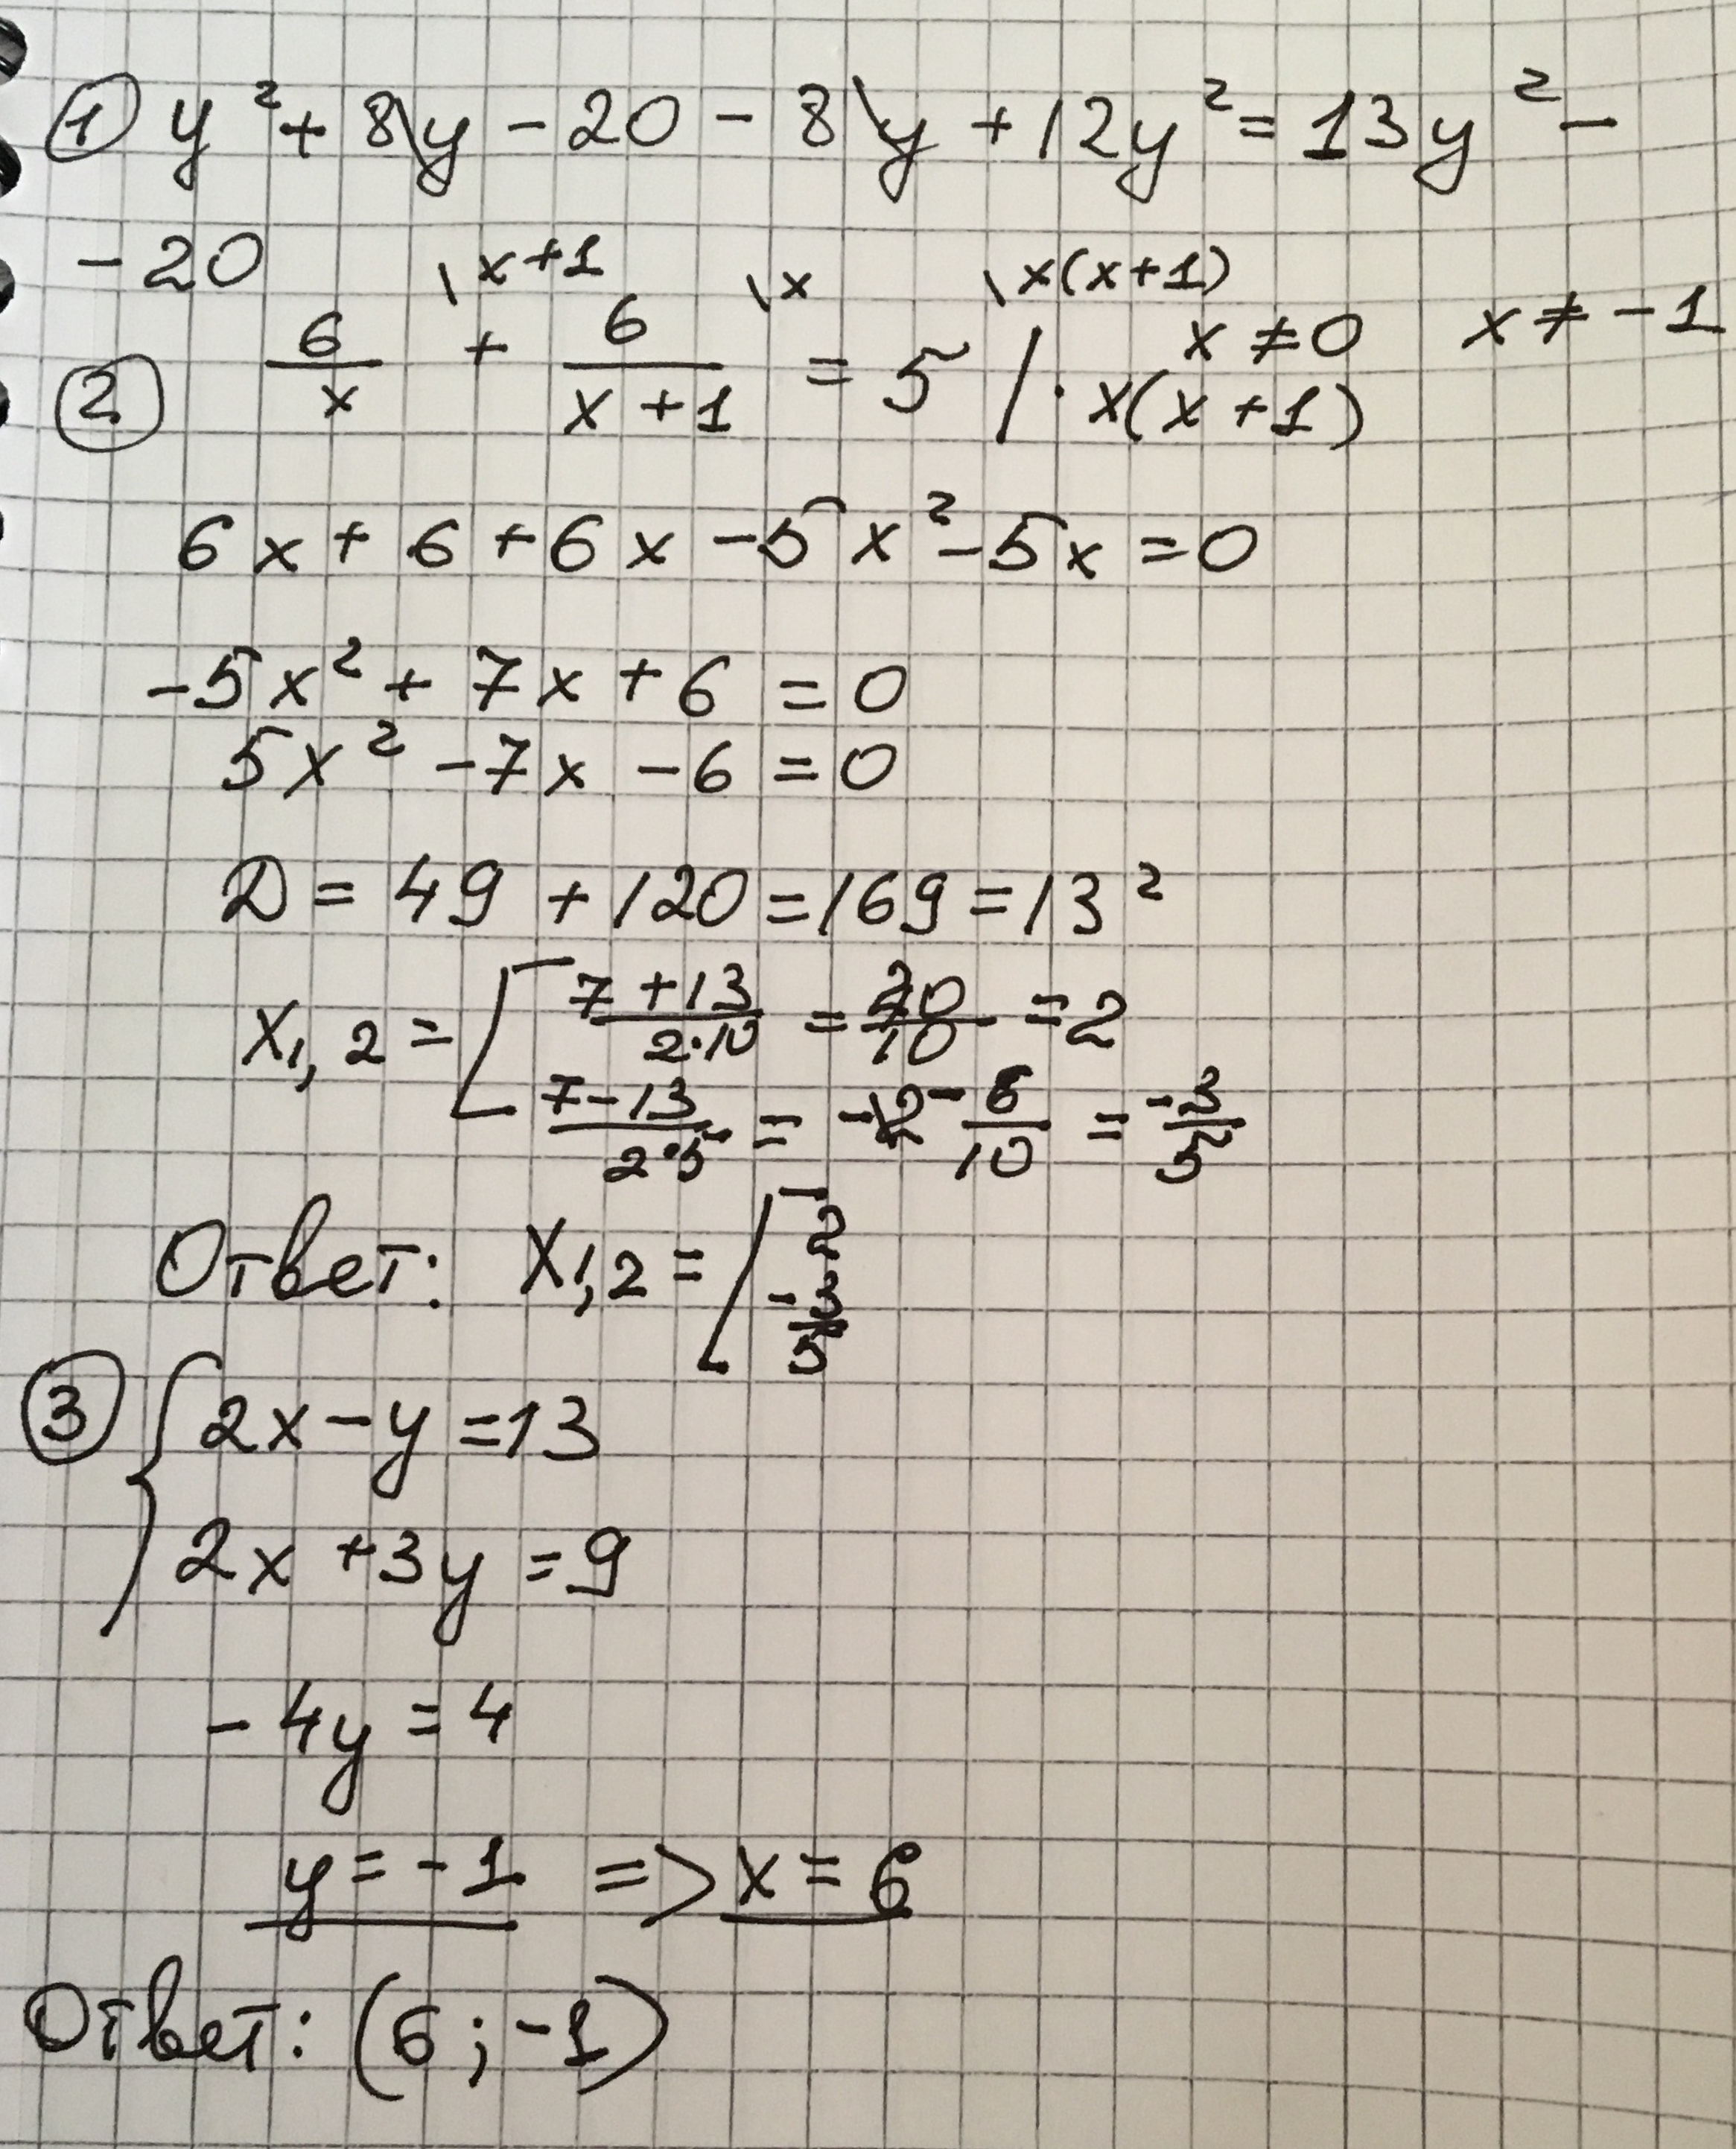 ① y² + 8y - 20 - 8y + 12y² = 13y² -
- 20
\x+1 \x \x(x+1)
② 6/x + 6/(x+1) = 5 / · x(x+1) x ≠ 0 x ≠ -1
6x + 6 + 6x - 5x² - 5x = 0
-5x² + 7x + 6 = 0
5x² - 7x - 6 = 0
D = 49 + 120 = 169 = 13²
X1,2 = [ (7+13)/(2·10) = 20/10 = 2
(7-13)/(2·5) = -12 - 6/10 = -3/5
Ответ: X1,2 = [ 2
-3/5
③ { 2x - y = 13
2x + 3y = 9
- 4y = 4
y = -1 => x = 6
Ответ: (6; -1)